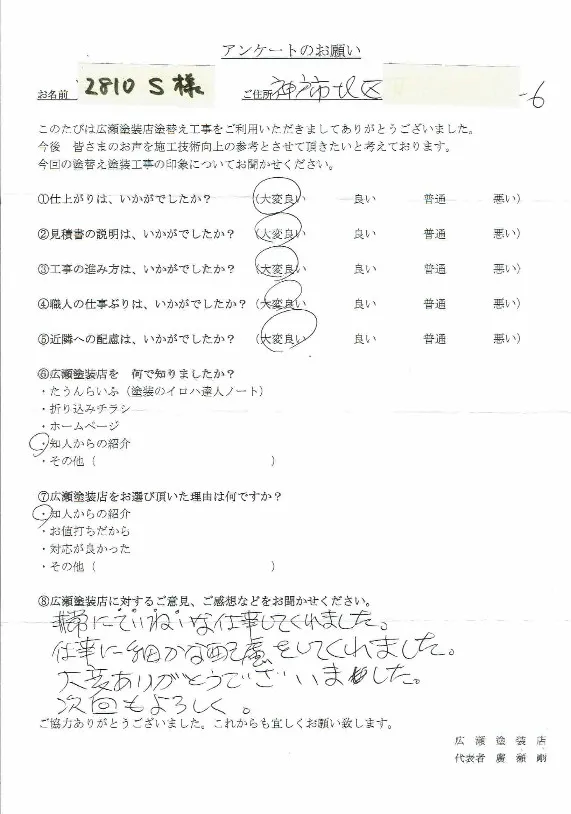 アンケートのお願い
お名前 2810 S 様 ご住所 神戸市北区 -6
このたびは広瀬塗装店塗替え工事をご利用いただきましてありがとうございました。
今後 皆さまのお声を施工技術向上の参考とさせて頂きたいと考えております。
今回の塗替え塗装工事の印象についてお聞かせください。
①仕上がりは、いかがでしたか？ (大変良い 良い 普通 悪い)
②見積書の説明は、いかがでしたか？ (大変良い 良い 普通 悪い)
③工事の進み方は、いかがでしたか？ (大変良い 良い 普通 悪い)
④職人の仕事ぶりは、いかがでしたか？ (大変良い 良い 普通 悪い)
⑤近隣への配慮は、いかがでしたか？ (大変良い 良い 普通 悪い)
⑥広瀬塗装店を 何で知りましたか？
・たうんらいふ（塗装のイロハ達人ノート）
・折り込みチラシ
・ホームページ
・知人からの紹介
・その他（ ）
⑦広瀬塗装店をお選び頂いた理由は何ですか？
・知人からの紹介
・お値打ちだから
・対応が良かった
・その他（ ）
⑧広瀬塗装店に対するご意見、ご感想などをお聞かせください。
非常にていねいな仕事してくれました。
仕事に細かな配慮をしてくれました。
大変ありがとうございました。
次回もよろしく。
ご協力ありがとうございました。これからも宜しくお願い致します。
広瀬塗装店
代表者 廣瀬 剛